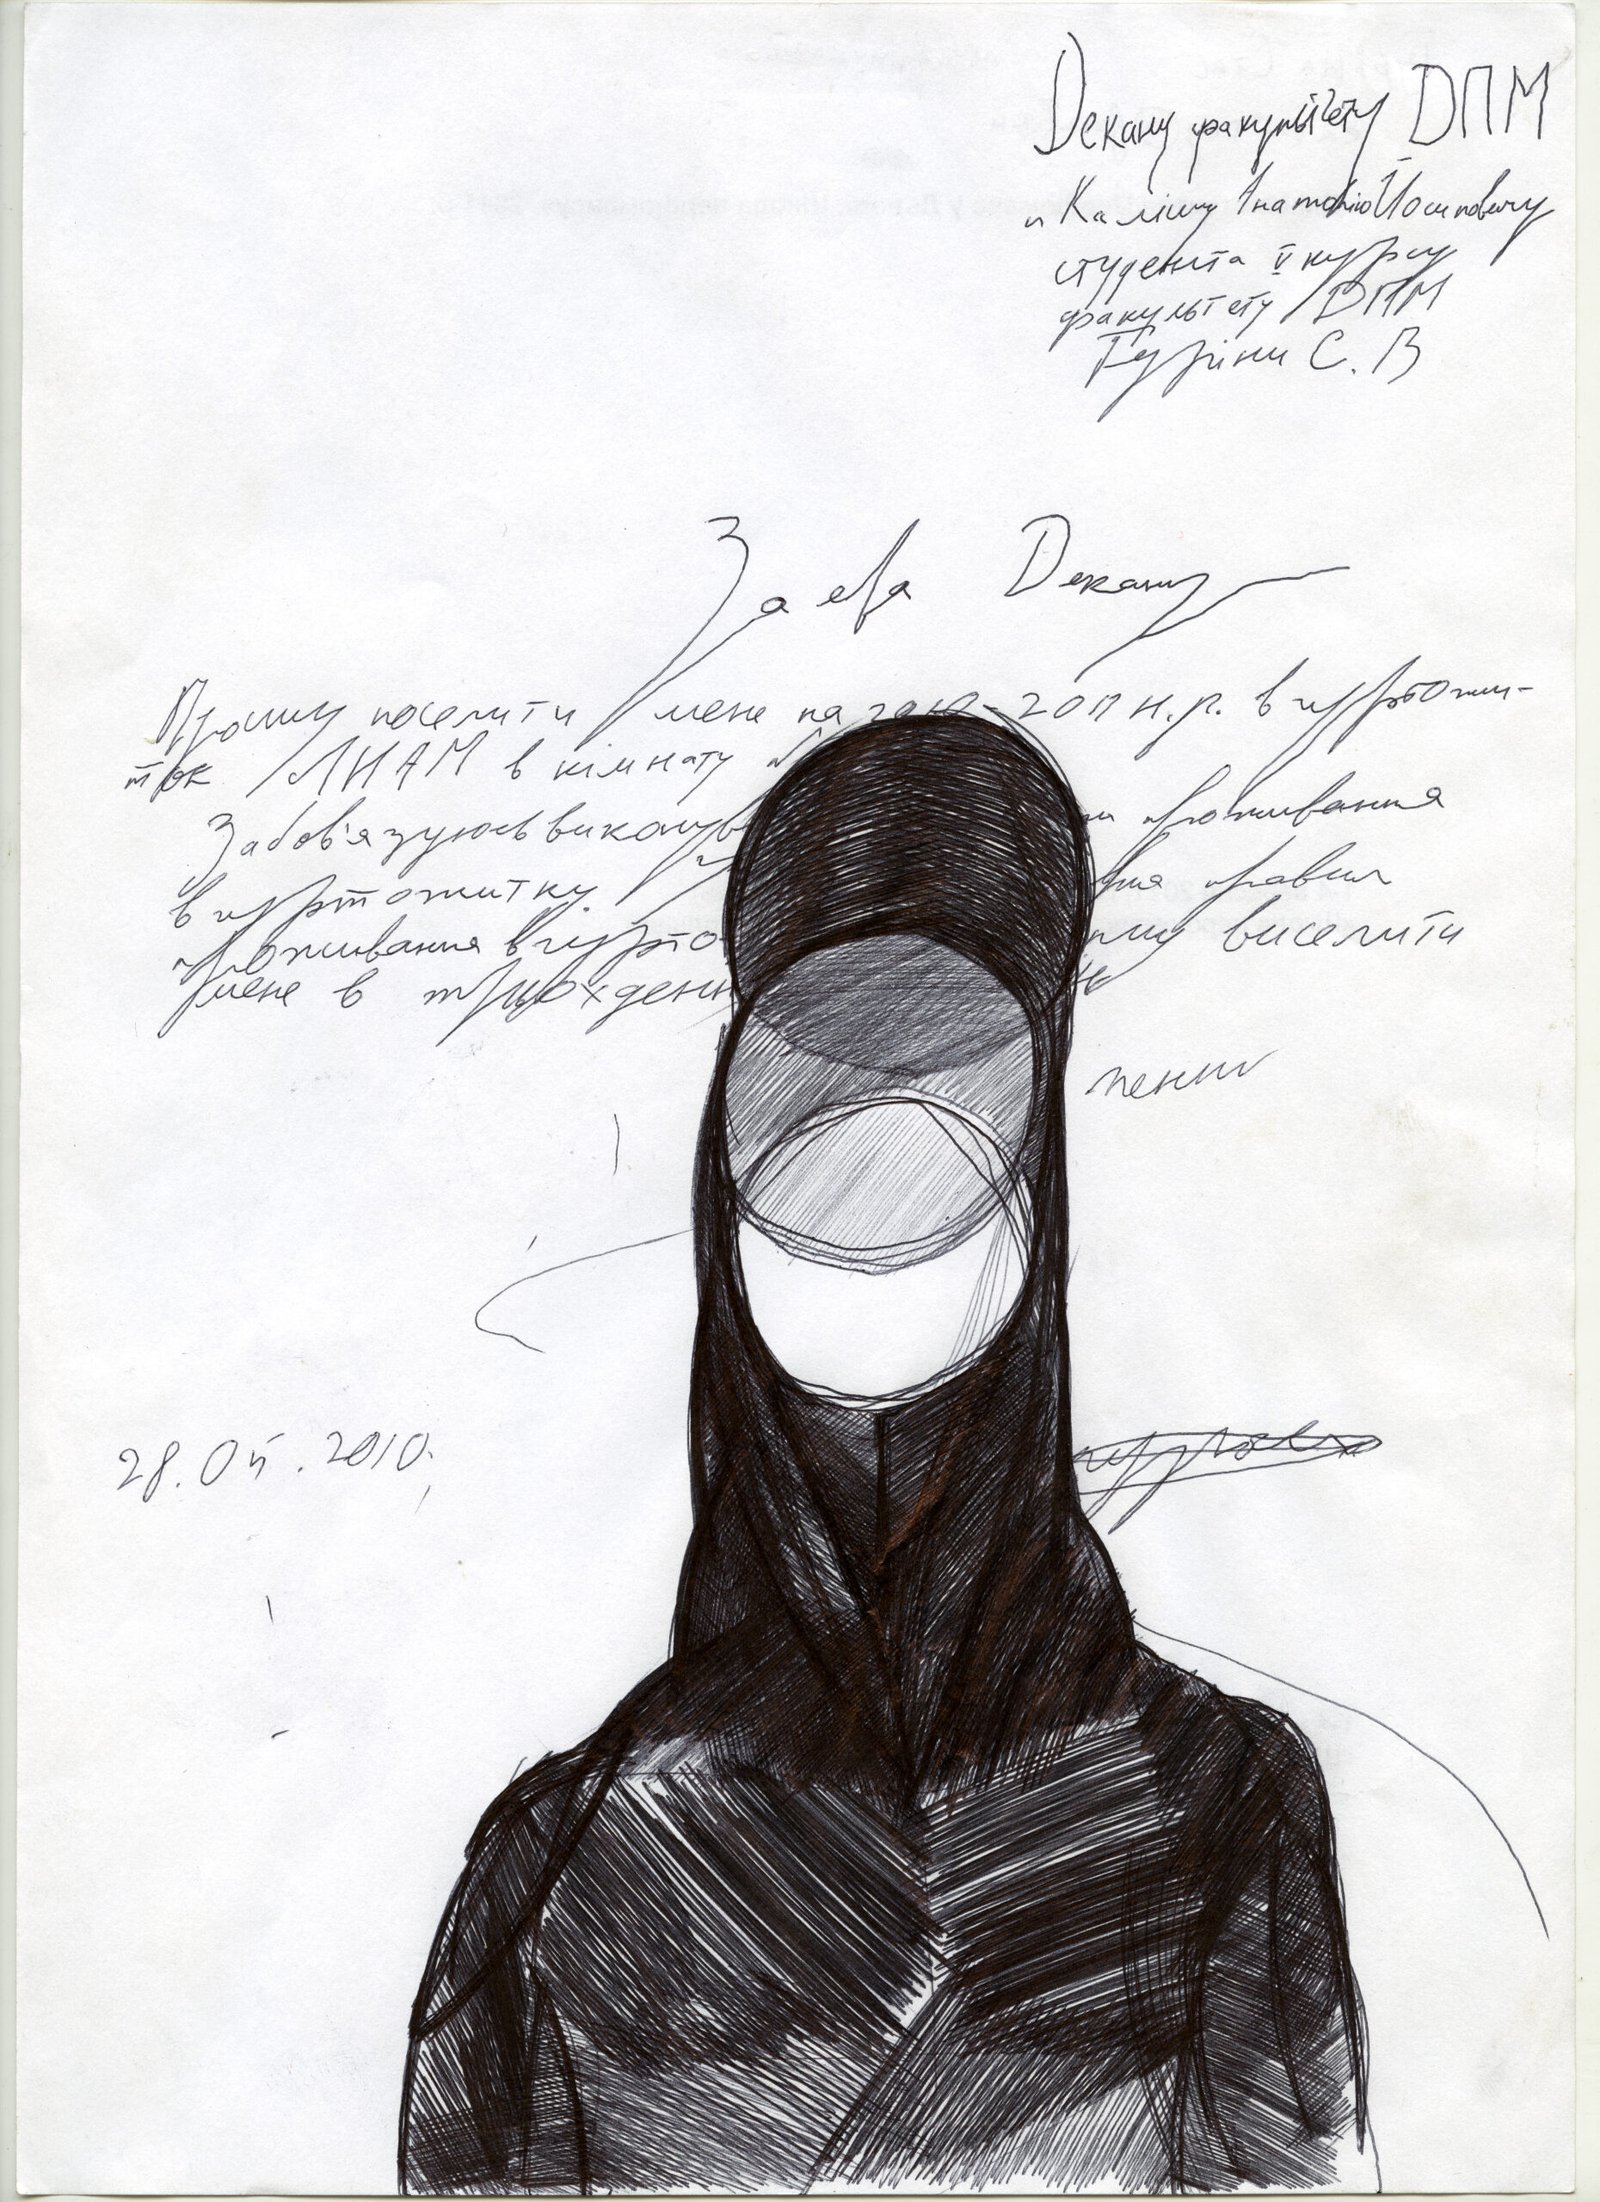 Декану факультету ДПМ
Каліну Анатолію Йосиповичу
студента V курсу
факультету ДПМ
Гуріни С. В
Заева Декану
Прошу поселити мене на 2010-2011 н.р. в гуртожи-
ток ЛНАМ в кімнату
Забов'язуюсь викону проживання
в гуртожитку. правил
проживання в гурто виселити
мене в трьохденн
28.05.2010.